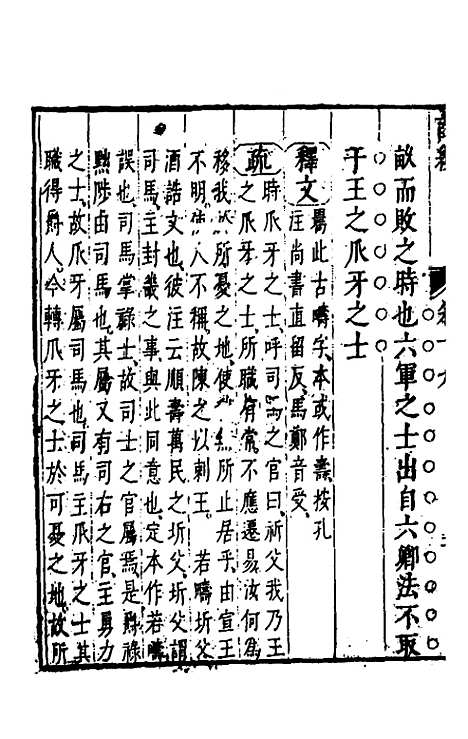 敵而敗之時也六軍之士出自六卿法不取
于王之爪牙之士
釋文 𠷎此古疇字本或作壽按孔
注尚書直留反馬鄭音受
疏 時爪牙之士呼司馬之官曰祈父我乃王
之爪牙之士所職有常不應遷易汝何爲
移我於所憂之地使 無所止居乎由宣王
不明使人不稱故陳之以刺王 若疇圻父
酒誥文也彼注云順壽萬民之圻父圻父謂
司馬主封畿之事與此同意也定本作若疇
誤也司馬掌祿士故司士之官屬焉是爵祿
黜陟由司馬也其屬又有司右之官主勇力
之士故爪牙屬司馬也司馬主爪牙之士其
職得爵人今轉爪牙之士於可憂之地故所